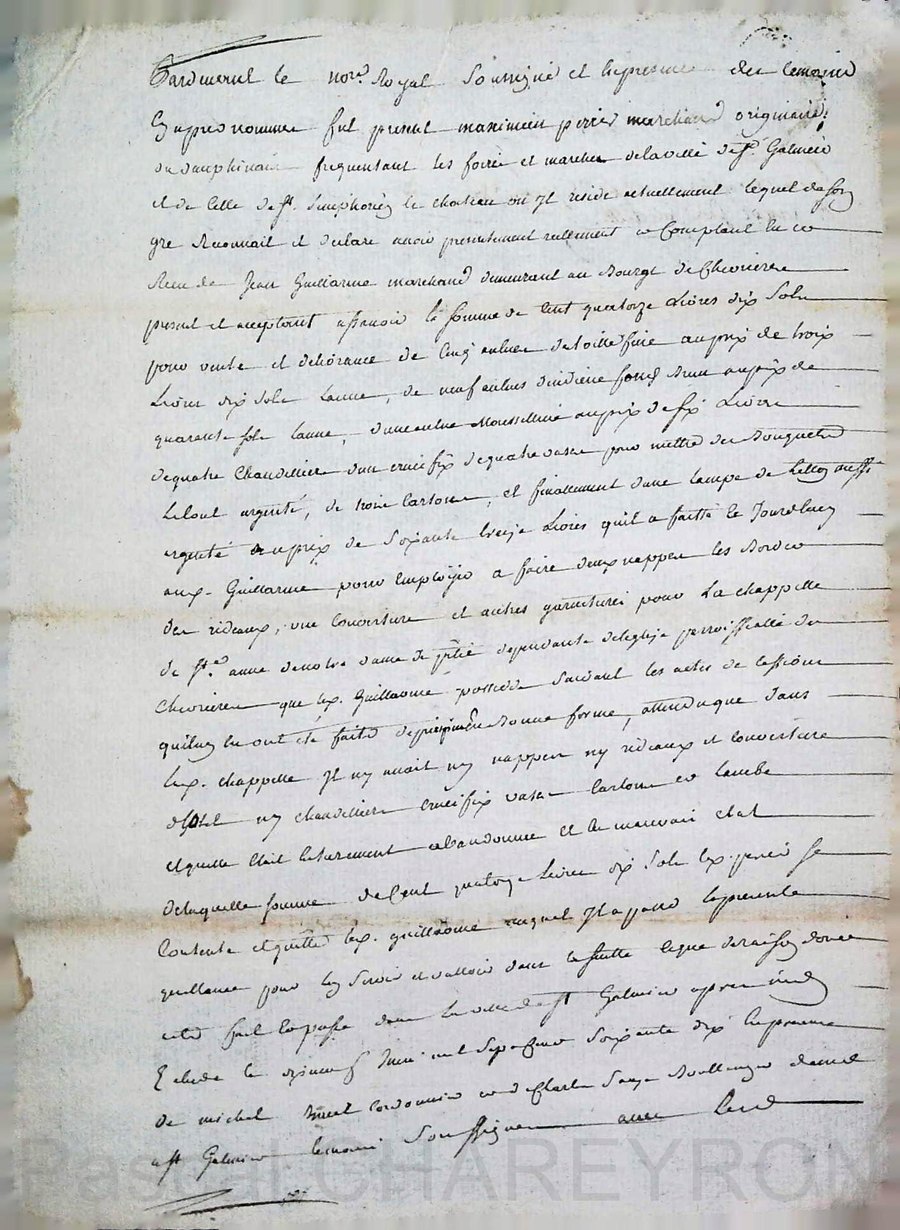 Pardevant le not.re Royal Soussigné et En presence des temoins
Cy apres nommes fut present maximien perrier marchand originaire
du dauphinais frequentant les foires et marches de la ville de st. Galmier
et de celle de st. Simphorien le chateau ou jl reside actuellement lequel de son
gre Reconnait et declare avoir presentement reellement et Comptant En ce
Receu de Jean Guillarme marchand demeurant au Bourgt de Chevrieres
present et acceptant assavoir la somme de Cent quatorze Livres dix Sols
pour vente et delivrance de Cinq aulnes de toille fine au prix de trois
Livres dix Sols Laune, de neuf aulnes dindiene fond Brun au prix de
quarente sols Laune, dune aulne Mousseline au prix de six Livres
de quatre Chandelliers dun crucifix de quatre vases pour mettre des Bouquets
Le tout argenté, de trois Cartons, et finallement dune Lampe de Letton aussi
argenté au prix de Soixante treize Livres quil a faitte ce Jourdhuy
aux. Guillarme pour Employer a faire deux nappes les Bords
des rideaux, une Couverture et autres garnitures pour La chappelle
de ste. anne de notre dame de pitié dependante de leglise parroissialle de
Chevrieres que lex. Guillaome possede Suivant les actes de Cession
quil luy en ont été faits Bonne forme, attendu que dans
lex. chappelle Jl ny avait ny nappes ny rideaux et couverture
dhotel ny chandelliers crucifix vases Cartons et Lampe
et quelle etait Entierement abandonnee et En mauvais etat
de laquelle somme de Cent quatorze Livres dix Sols lex. perrier se
Contente et quitte lex. guillaome auquel Jl a passé la presente
quittance pour luy Servir et valloir dans la suitte Ce que de raison donne
acte fait et passe dans la ville de st Galmier apres midy
Etude le dixneuf Juin mil Sept Cent Soixante dix En presence
de michel Cordonnier et de Charles Boullanger demt
a st Galmier temoins Soussignes avec Led
Pascal CHAREYRON